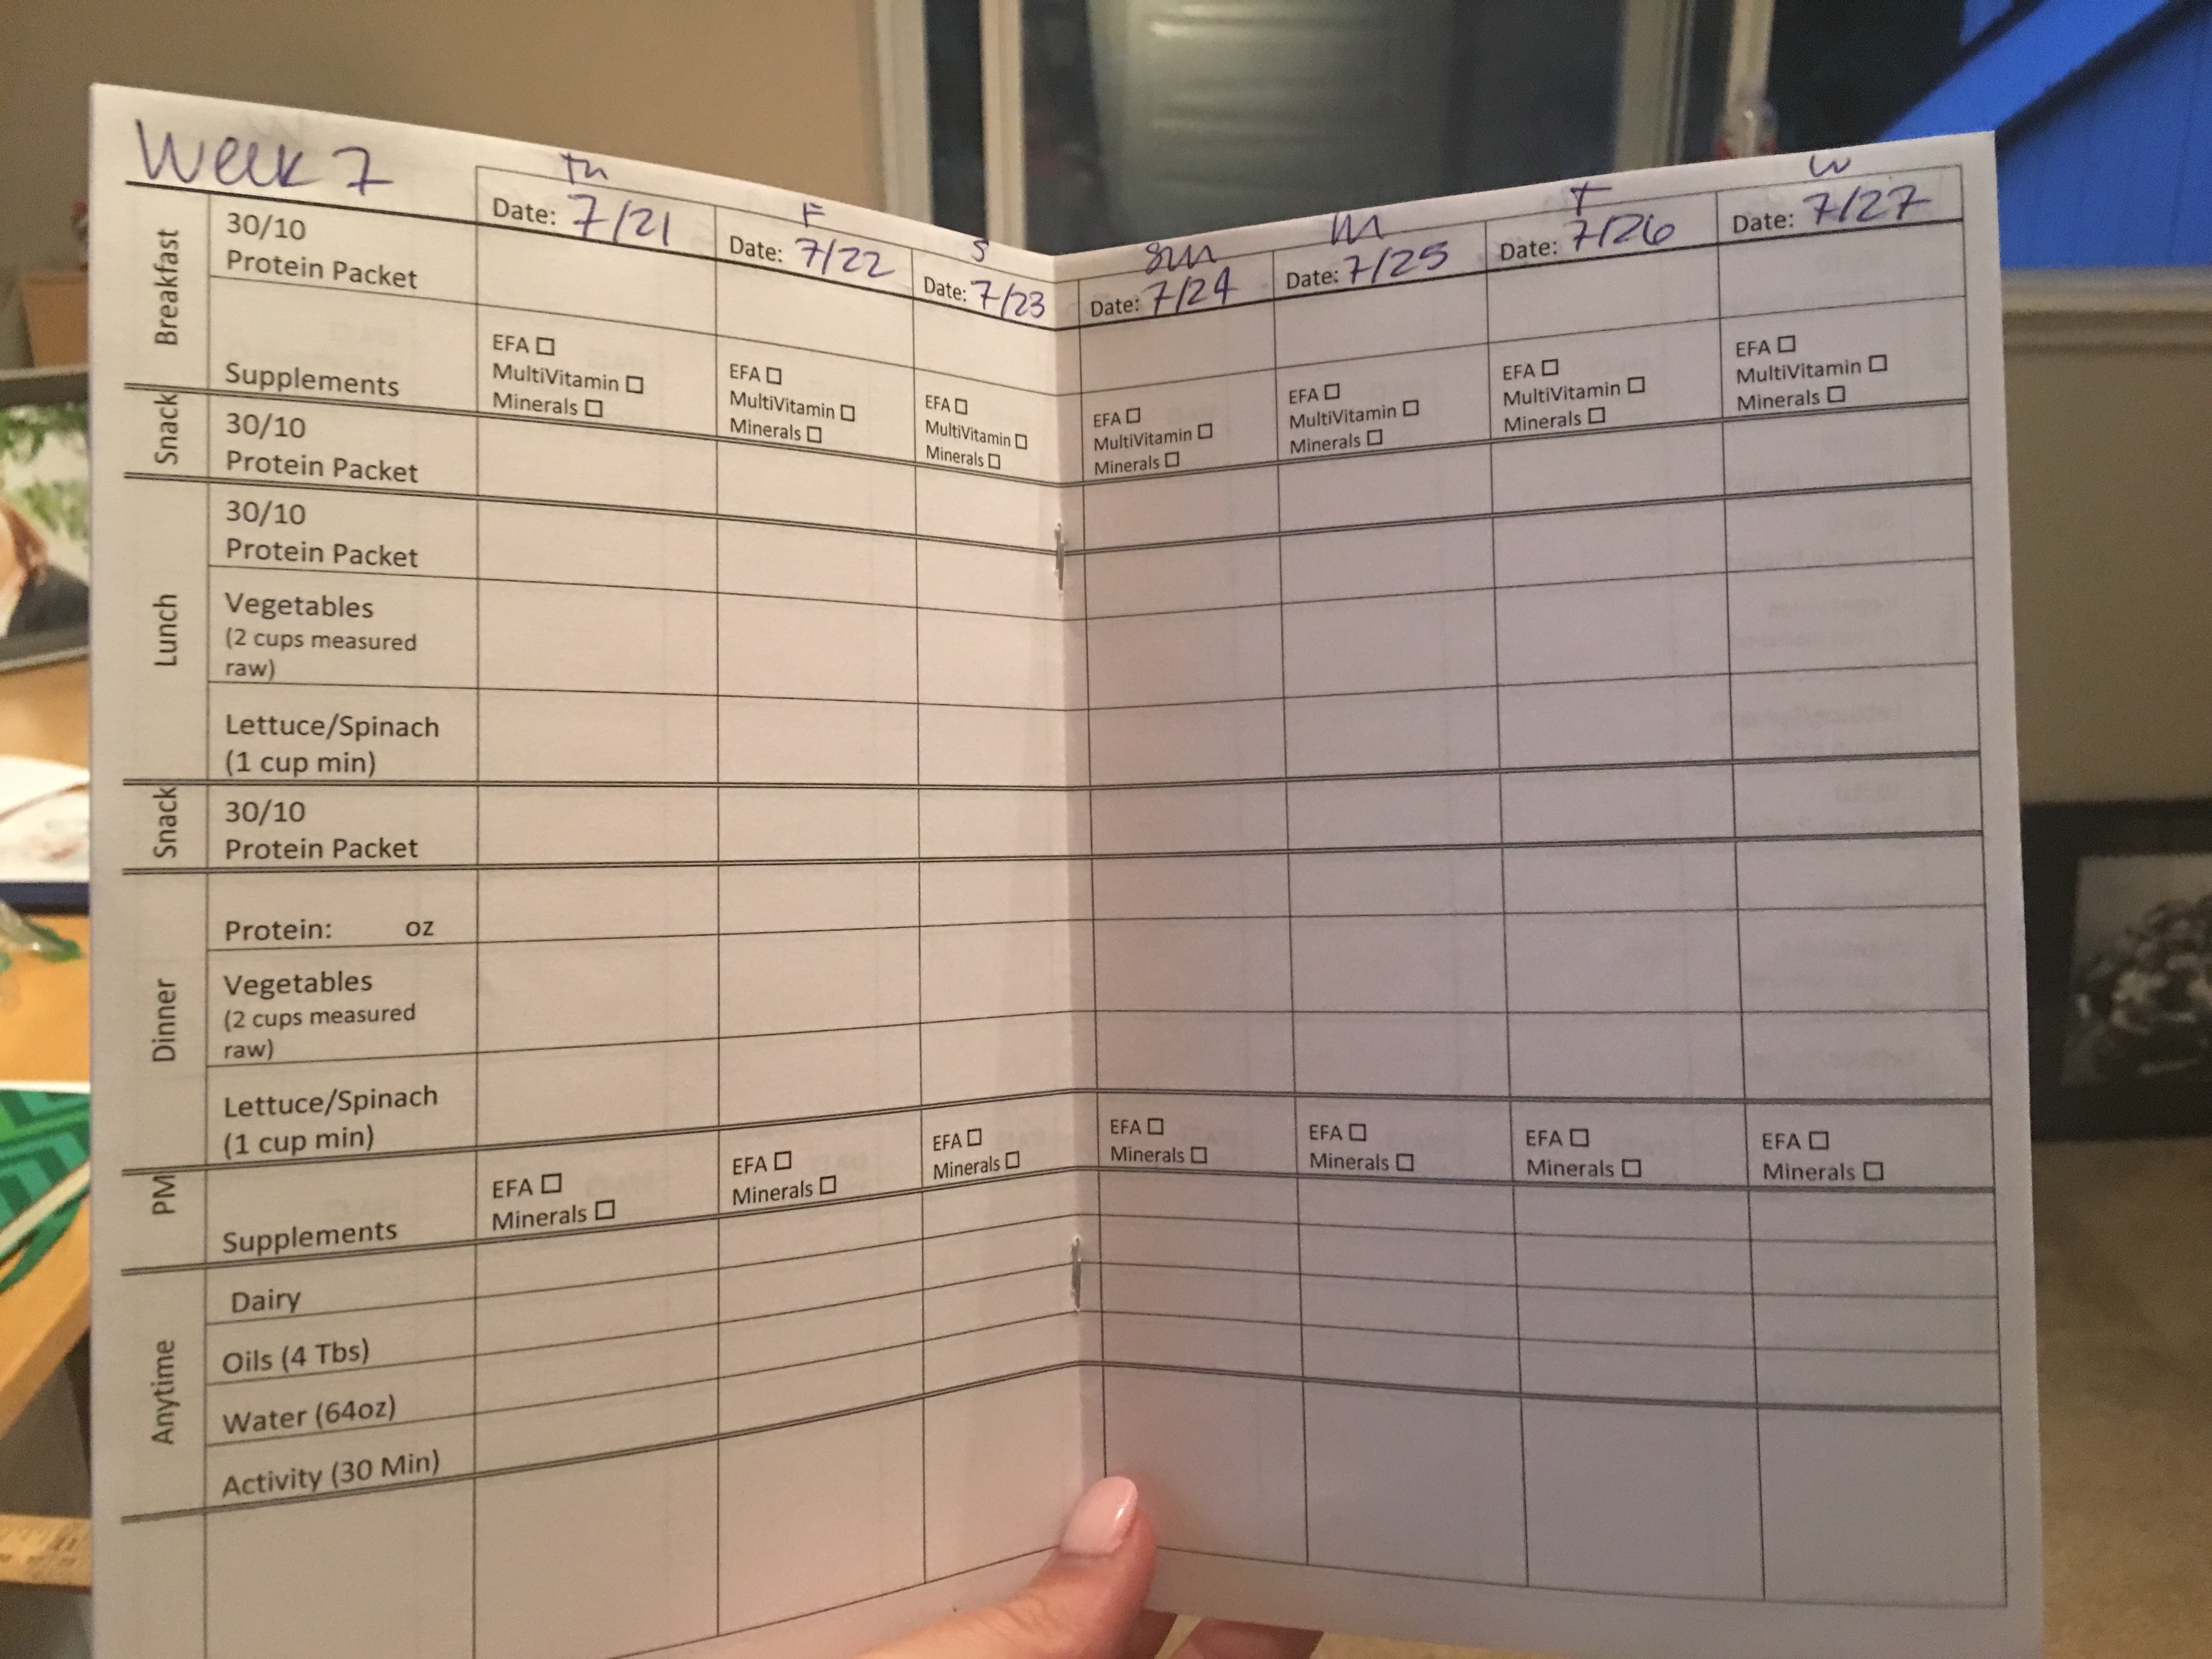 Week 7
Th F S Sun M T W
Date: 7/21 Date: 7/22 Date: 7/23 Date: 7/24 Date: 7/25 Date: 7/26 Date: 7/27
Breakfast
30/10
Protein Packet
Supplements
EFA ☐ EFA ☐ EFA ☐ EFA ☐ EFA ☐ EFA ☐ EFA ☐
MultiVitamin ☐ MultiVitamin ☐ MultiVitamin ☐ MultiVitamin ☐ MultiVitamin ☐ MultiVitamin ☐ MultiVitamin ☐
Minerals ☐ Minerals ☐ Minerals ☐ Minerals ☐ Minerals ☐ Minerals ☐ Minerals ☐
Snack
30/10
Protein Packet
Lunch
30/10
Protein Packet
Vegetables
(2 cups measured
raw)
Lettuce/Spinach
(1 cup min)
Snack
30/10
Protein Packet
Dinner
Protein: oz
Vegetables
(2 cups measured
raw)
Lettuce/Spinach
(1 cup min)
PM
Supplements
EFA ☐ EFA ☐ EFA ☐ EFA ☐ EFA ☐ EFA ☐ EFA ☐
Minerals ☐ Minerals ☐ Minerals ☐ Minerals ☐ Minerals ☐ Minerals ☐ Minerals ☐
Anytime
Dairy
Oils (4 Tbs)
Water (64oz)
Activity (30 Min)